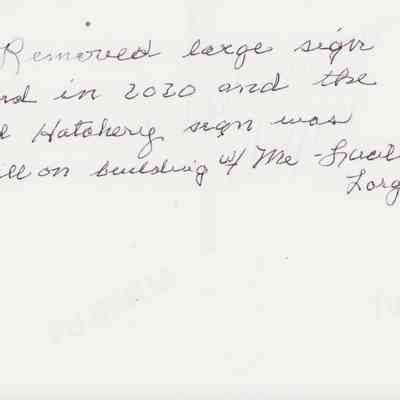 Removed large sign
in 2020 and the
Hatchery sign was
on building w/ Me -